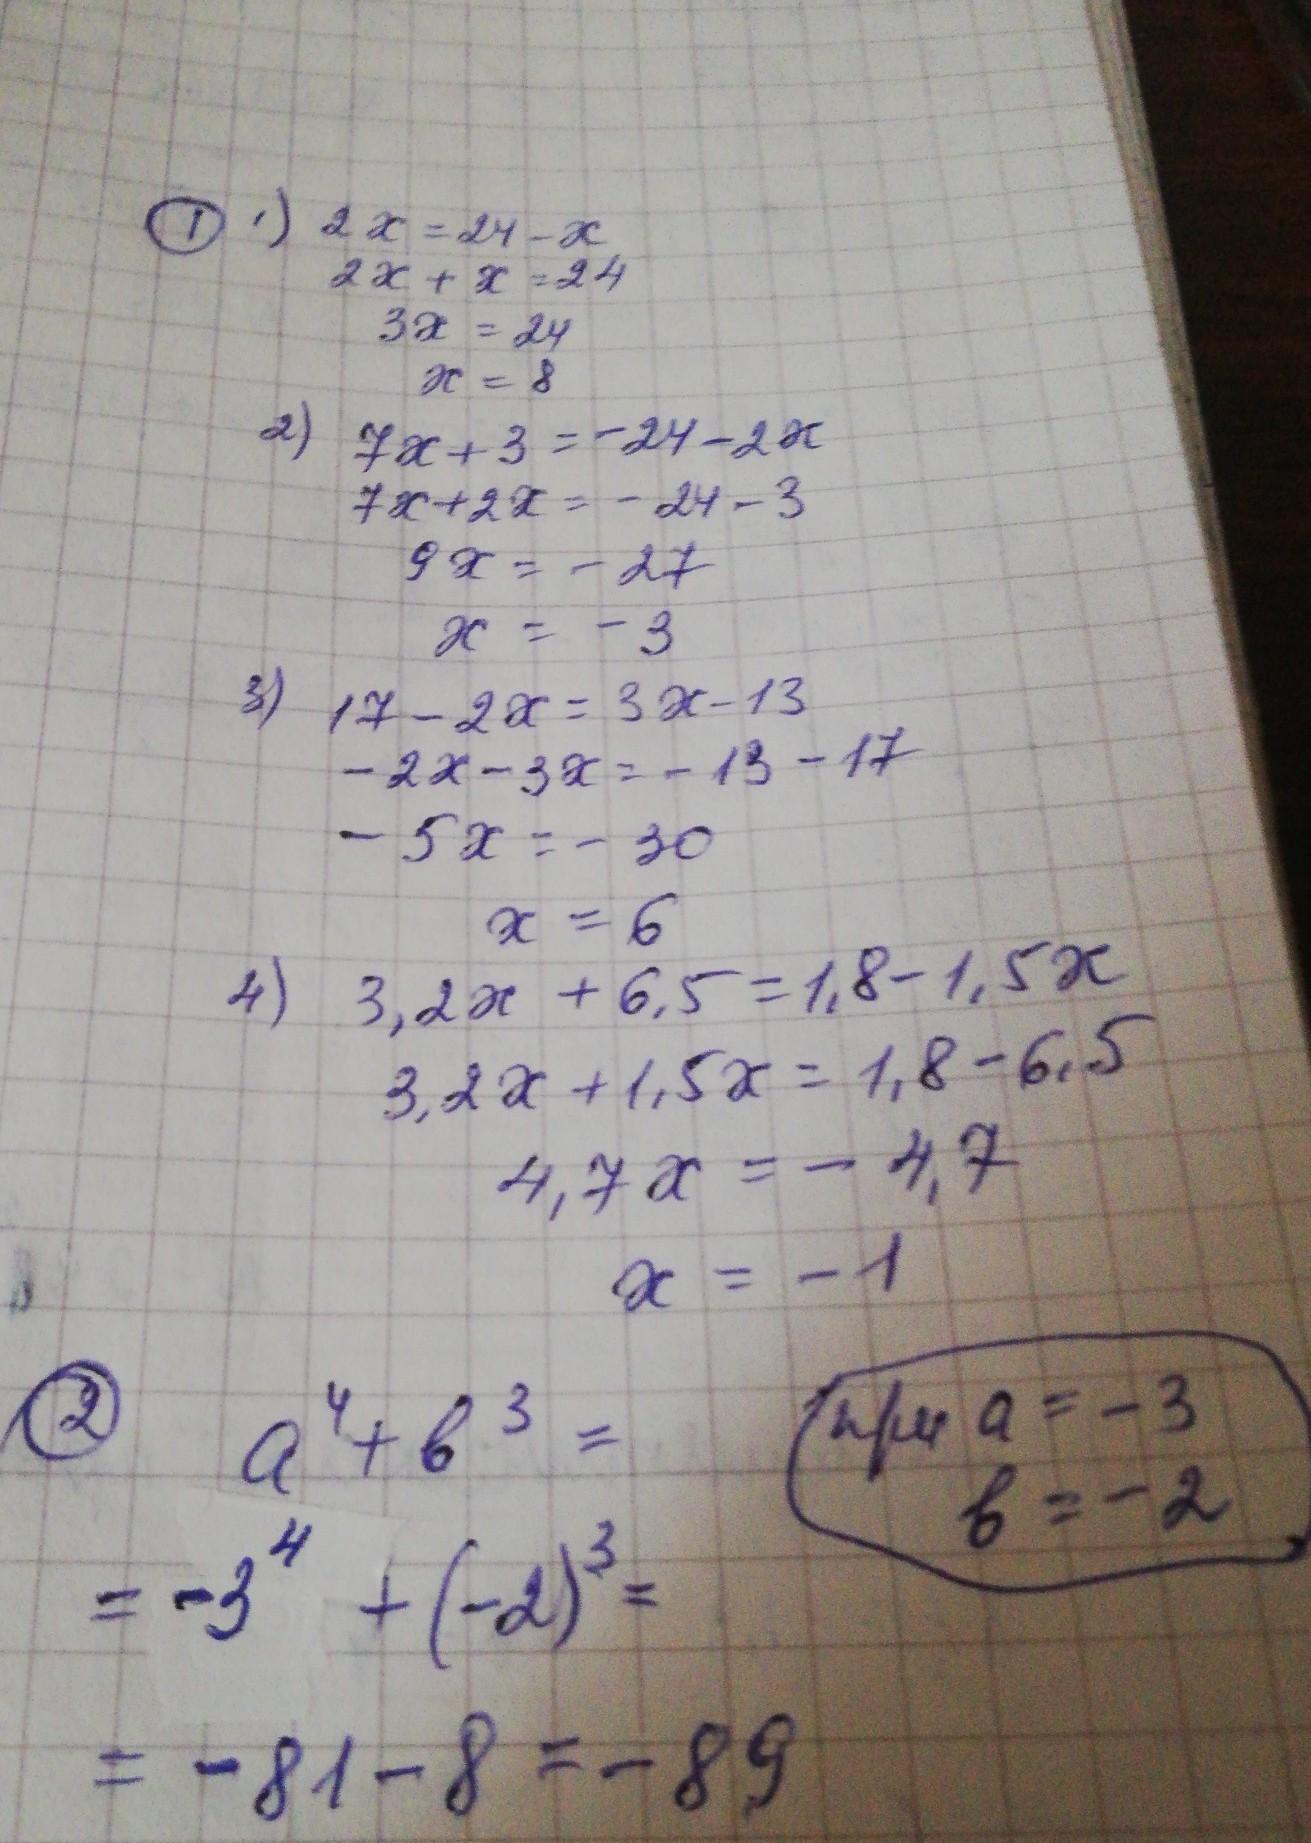 ① 1) 2x = 24 - x
2x + x = 24
3x = 24
x = 8
2) 7x + 3 = -24 - 2x
7x + 2x = -24 - 3
9x = -27
x = -3
3) 17 - 2x = 3x - 13
-2x - 3x = -13 - 17
-5x = -30
x = 6
4) 3,2x + 6,5 = 1,8 - 1,5x
3,2x + 1,5x = 1,8 - 6,5
4,7x = -4,7
x = -1
② a⁴ + b³ =
при a = -3
b = -2
= -3⁴ + (-2)³ =
= -81 - 8 = -89